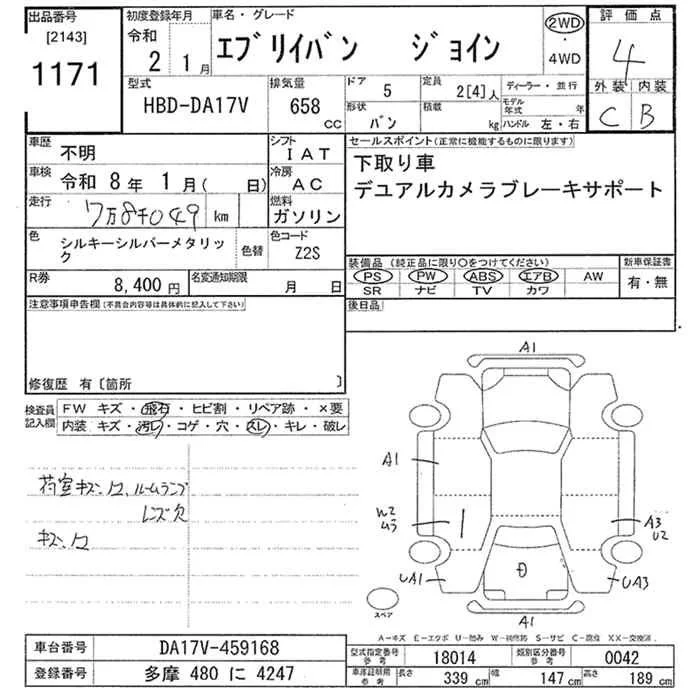 出品番号
[2143]
1171
初度登録年月
令和
2 1月
車名・グレード
エブリイバン ジョイン
2WD
・
4WD
評価点
4
外装 内装
C B
型式
HBD-DA17V
排気量
658
CC
ドア
5
定員
2[4]人
形状
バン
積載
kg
ディーラー・並行
モデル
年式 年
ハンドル 左・右
車歴
不明
シフト
IAT
車検
令和 8年 1月( 日)
冷房
AC
走行
7万8千049 km
燃料
ガソリン
色
シルキーシルバーメタリッ
ク
色替
色コード
Z2S
R券
8,400円
名変通知期限
月 日
セールスポイント(正常に機能するものに限ります)
下取り車
デュアルカメラブレーキサポート
装備品(純正品に限り○をつけてください)
PS PW ABS エアB AW
SR ナビ TV カワ
新車保証書
有・無
後日品
注意事項申告欄(不具合内容等は具体的に記入して下さい)
修復歴 有〔箇所 〕
検査員
記入欄
FW キズ・飛石・ヒビ割・リペア跡・×要
内装 キズ・汚レ・コゲ・穴・スレ・キレ・破レ
荷室キズ、凹、ルームランプ
レンズ欠
キズ、凹
A1
A1
W2
ムラ
A3
U2
UA1
UA3
A1
スペア
A-キズ E-エクボ U-凹み W-補修跡 S-サビ C-腐蝕 XX-交換済
車台番号
DA17V-459168
登録番号
多摩 480 に 4247
型式指定番号
参考
18014
類別区分番号
参考
0042
車庫証明用
参考
長さ
339 cm
幅
147 cm
高さ
189 cm